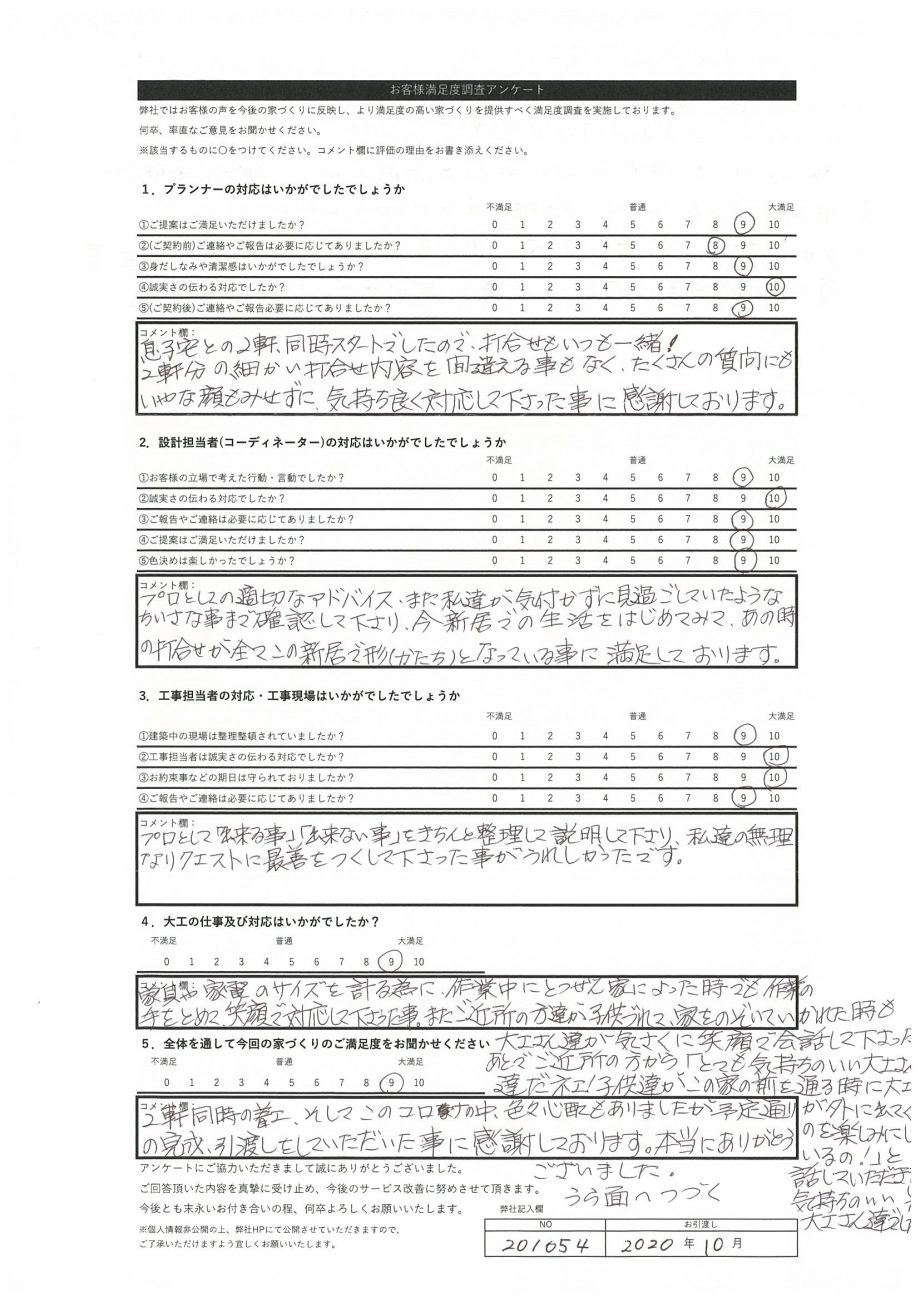 お客様満足度調査アンケート
弊社ではお客様の声を今後の家づくりに反映し、より満足度の高い家づくりを提供すべく満足度調査を実施しております。
何卒、率直なご意見をお聞かせください。
※該当するものに〇をつけてください。コメント欄に評価の理由をお書き添えください。
1．プランナーの対応はいかがでしたでしょうか
不満足 普通 大満足
①ご提案はご満足いただけましたか？ 0 1 2 3 4 5 6 7 8 9 10
②(ご契約前)ご連絡やご報告は必要に応じてありましたか？ 0 1 2 3 4 5 6 7 8 9 10
③身だしなみや清潔感はいかがでしたでしょうか？ 0 1 2 3 4 5 6 7 8 9 10
④誠実さの伝わる対応でしたか？ 0 1 2 3 4 5 6 7 8 9 10
⑤(ご契約後)ご連絡やご報告必要に応じてありましたか？ 0 1 2 3 4 5 6 7 8 9 10
コメント欄：
息子宅との2軒、同時スタートでしたので、打合せもいつも一緒！
2軒分の細かい打合せ内容を間違える事もなく、たくさんの質向にも
いやな顔もみせずに、気持ち良く対応して下さった事に感謝しております。
2．設計担当者(コーディネーター)の対応はいかがでしたでしょうか
不満足 普通 大満足
①お客様の立場で考えた行動・言動でしたか？ 0 1 2 3 4 5 6 7 8 9 10
②誠実さの伝わる対応でしたか？ 0 1 2 3 4 5 6 7 8 9 10
③ご報告やご連絡は必要に応じてありましたか？ 0 1 2 3 4 5 6 7 8 9 10
④ご提案はご満足いただけましたか？ 0 1 2 3 4 5 6 7 8 9 10
⑤色決めは楽しかったでしょうか？ 0 1 2 3 4 5 6 7 8 9 10
コメント欄：
プロとしての適切なアドバイス、また私達が気付かずに見過ごしていたような
ちいさな事まで確認して下さり、今新居での生活をはじめてみて、あの時
の打合せが全てこの新居で形(かたち)となっている事に満足しております。
3．工事担当者の対応・工事現場はいかがでしたでしょうか
不満足 普通 大満足
①建築中の現場は整理整頓されていましたか？ 0 1 2 3 4 5 6 7 8 9 10
②工事担当者は誠実さの伝わる対応でしたか？ 0 1 2 3 4 5 6 7 8 9 10
③お約束事などの期日は守られておりましたか？ 0 1 2 3 4 5 6 7 8 9 10
④ご報告やご連絡は必要に応じてありましたか？ 0 1 2 3 4 5 6 7 8 9 10
コメント欄：
プロとして「出来る事」「出来ない事」をきちんと整理して説明して下さり、私達の無理
なリクエストに最善をつくして下さった事がうれしかったです。
4．大工の仕事及び対応はいかがでしたか？
不満足 普通 大満足
0 1 2 3 4 5 6 7 8 9 10
家具や家電のサイズを計る為に、作業中にとつぜん家によった時でも作業の
手をとめて、笑顔で対応して下さった事。またご近所の方達が子供づれで、家をのぞいていかれた時も
大工さん達が気さくに笑顔で会話して下さった
あとでご近所の方から「とても気持ちのいい大工さん
達だネェ！子供達がこの家の前を通る時に大工
が外に出てく
のを楽しみにし
いるの！」と
話していただき
気持ちのいい
大工さん達でし
5．全体を通して今回の家づくりのご満足度をお聞かせください
不満足 普通 大満足
0 1 2 3 4 5 6 7 8 9 10
コメント欄：
2軒同時の着工、そしてこのコロナの中、色々心配もありましたが予定通り
の完成、引渡しをしていただいた事に感謝しております。本当にありがとう
ございました。
うら面へつづく
アンケートにご協力いただきまして誠にありがとうございました。
ご回答頂いた内容を真摯に受け止め、今後のサービス改善に努めさせて頂きます。
今後とも末永いお付き合いの程、何卒よろしくお願いいたします。
※個人情報非公開の上、弊社HPにて公開させていただきますので、
ご了承いただけますよう宜しくお願いいたします。
弊社記入欄
NO お引渡し
201054 2020年10月